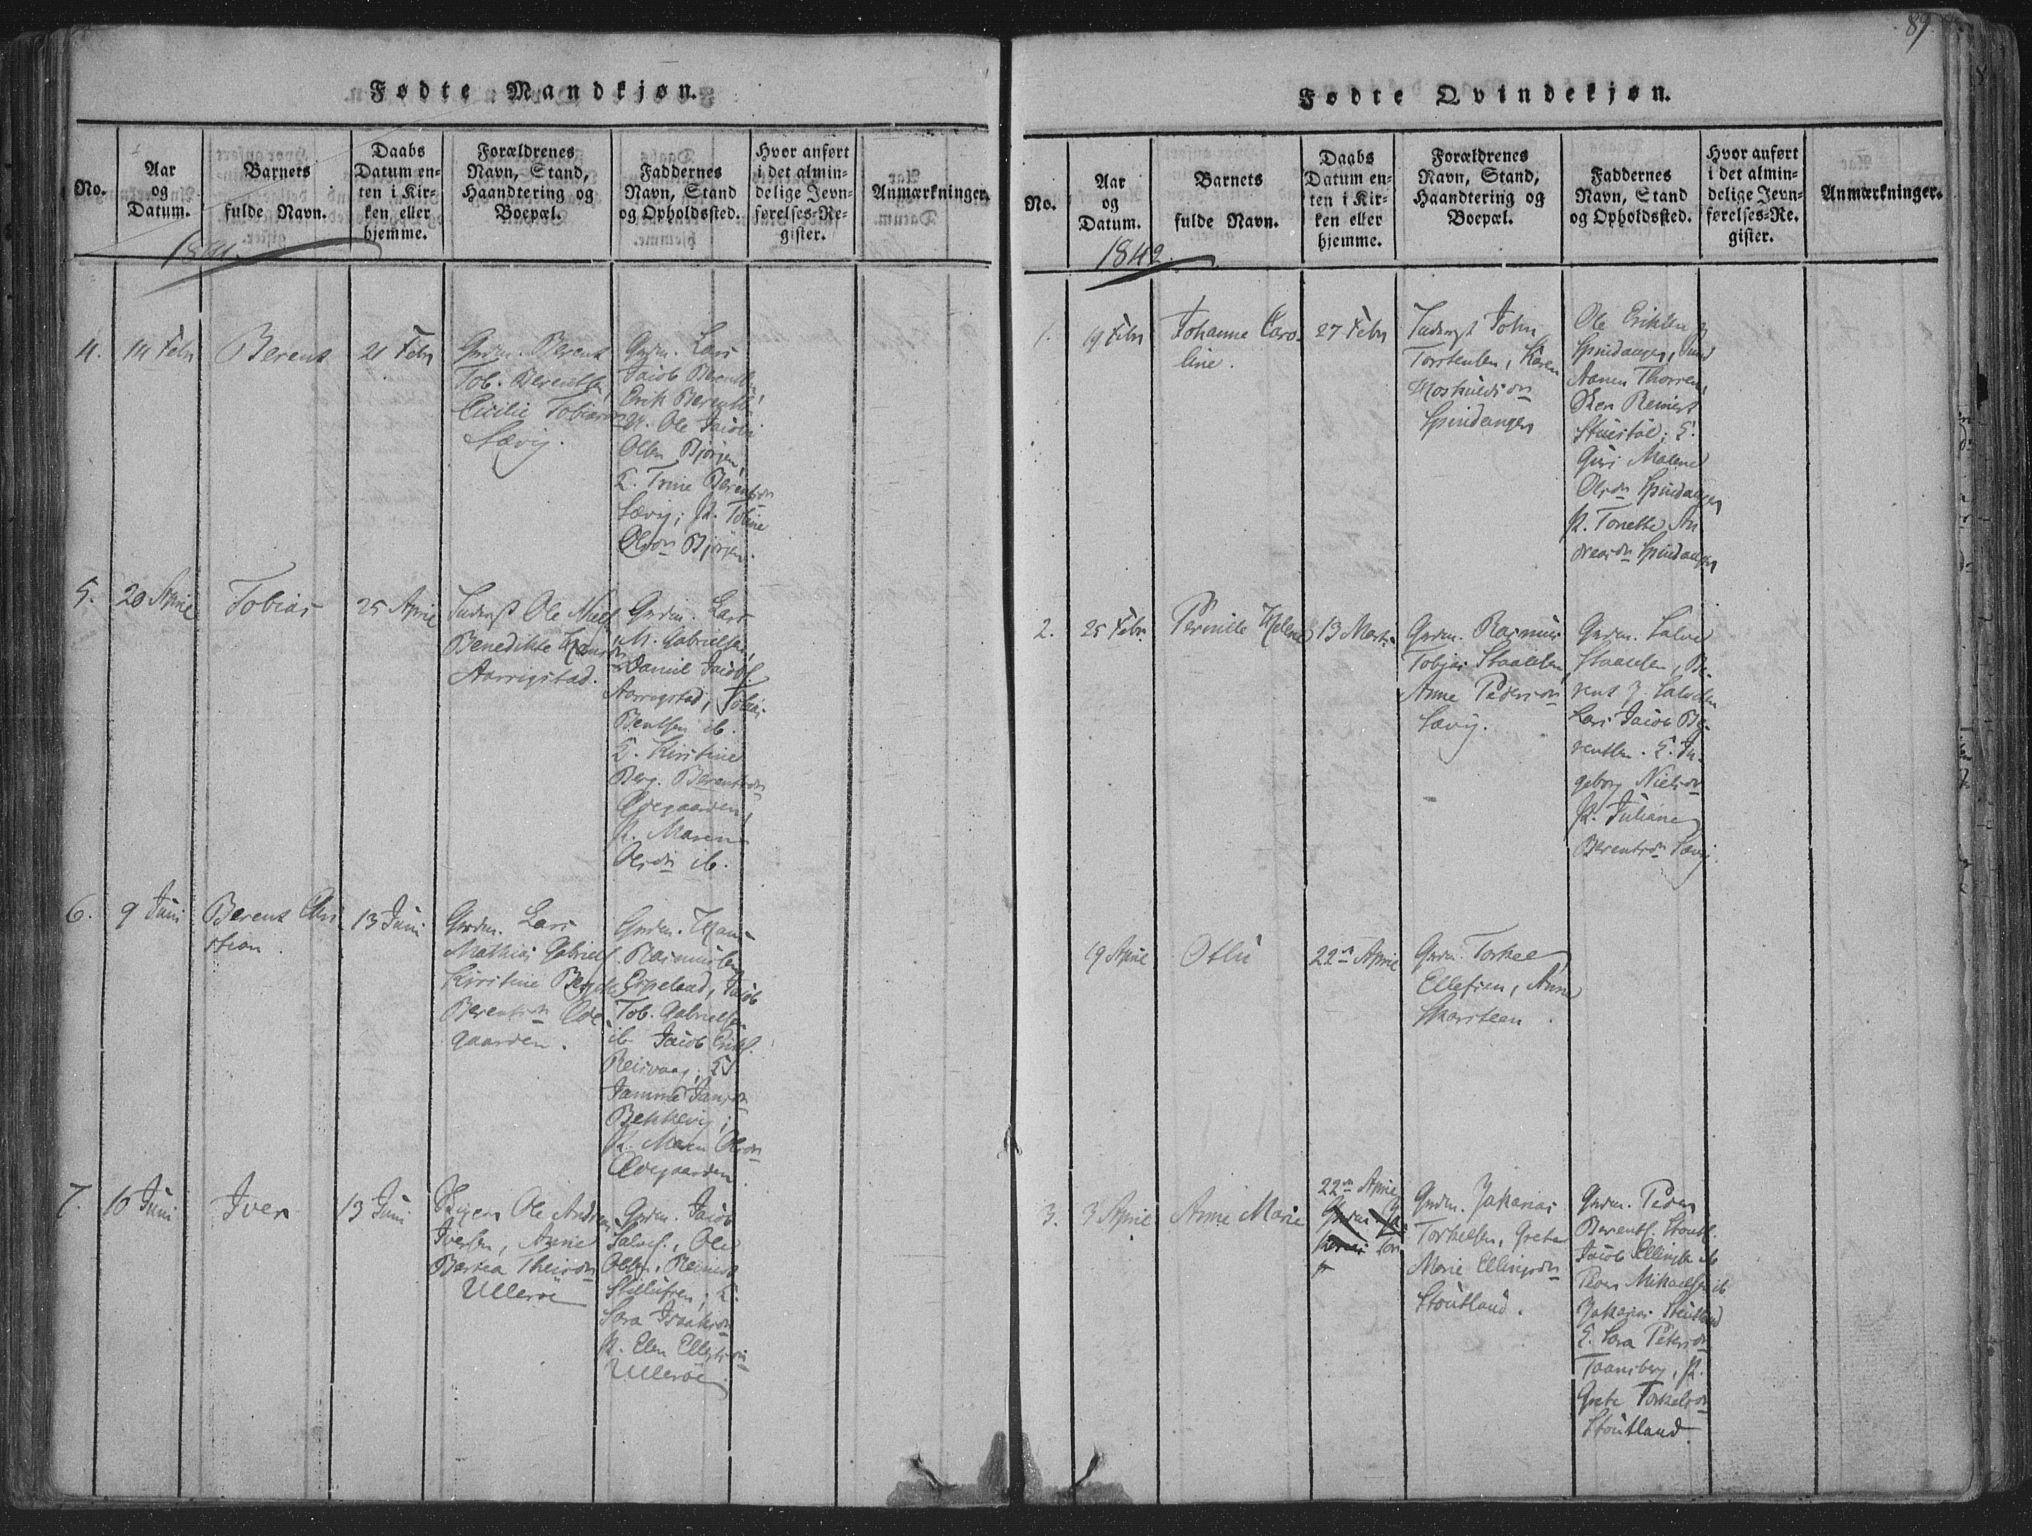 Fødte Mandkjøn.
No.
Aar
og
Datum.
Barnets
fulde Navn.
Daabs
Datum en-
ten i Kir-
ken eller
hjemme.
Forældrenes
Navn, Stand,
Haandtering og
Boepæl.
Faddernes
Navn, Stand
og Opholdssted.
Hvor anført
i det almin-
delige Jevn-
førelses-Re-
gister.
Anmærkninger.
4.
14 Febr
Berent
21 Febr
Gaardm. Berent
Tob. Berentsen,
Cicilie Tobiasd
Sævig.
Gaardm. Lars
Jacob Berentsen
Erik Berents
Ole Jacob
Olsen Bjørgen,
Q. Trine Berentsdr
Sævig; P. Tobine
Olsdr Bjørgen.
5.
20 April
Tobias
25 April
Inderst Ole Niels
Benedikte
Aarrigstad.
Gaardm. Lars
M. Gabrielsen,
Daniel Jacobs
Aarrigstad, Tobias
Bentsen ib.
Q. Kirstine
Berg. Berentsdr
Ødegaarden,
P. Maren
Olsdr ib.
6.
9 Juni
Berent Chri-
stian.
13 Juni
Gaardm. Lars
Mathias Gabriels.
Kirstine Bergitte
Berentsdr Øde-
gaarden.
Gaardm. Hans
Rasmusen
Espeland, Jacob
Tob. Gabrielsen
ib. Jacob Eriks.
Reisvaag, Q.
Bekkevig;
P. Maren Olsdr
Ødegaarden
7.
10 Juni
Iver
13 Juni
Ole Andreas
Iversen, Anne
Bertea Theisdr
Ullerøe
Gaardm. Jacob
Salves., Ole
Olsen, Reinert
Q.
Sara Isaksdr
P. Elen
Ullerøe
89
Fødte Qvindekjøn.
No.
Aar
og
Datum.
Barnets
fulde Navn.
Daabs
Datum en-
ten i Kir-
ken eller
hjemme.
Forældrenes
Navn, Stand,
Haandtering og
Boepæl.
Faddernes
Navn, Stand
og Opholdssted.
Hvor anført
i det almin-
delige Jevn-
førelses-Re-
gister.
Anmærkninger.
1842.
1.
19 Febr
Johanne Caro-
line.
27 Febr
Inderst John
Torstensen, Karen
Hoskuldsdr
Spindanger
Ole Eriksen
Spindanger,
Aanen
Reinert
Q.
Guri Malene
Olsdr Spindanger
P. Tonette An-
dreasdr Spindanger
2.
25 Febr.
Pernille Helene
13 Marts
Gaardm. Rasmus
Tobias Staalesen,
Anne Pedersdr
Sævig.
Gaardm. Salve
Staalesen, Be-
rent J. Salvesen
Lars Jacob Be-
rentsen. Q. In-
geborg Nielsdr
P. Juliane
Berentsdr Sævig.
19 April
Otlie
22de April
Gaardm. Torkel
Ellefsen, Anne
Skarsteen.
3.
3 April
Anne Marie
22de April
Gaardm. Zakarias
Torkelsen, Grete
Marie Ellingsdr
Stoutland.
Gaardm. Peder
Berents. Stoutl.
Jacob Ellings ib
Peder Mikaels ib
Zakarias Stoutland
Q. Sara Petersdr
Taansberg, P.
Grete Torkelsdr
Stoutland.